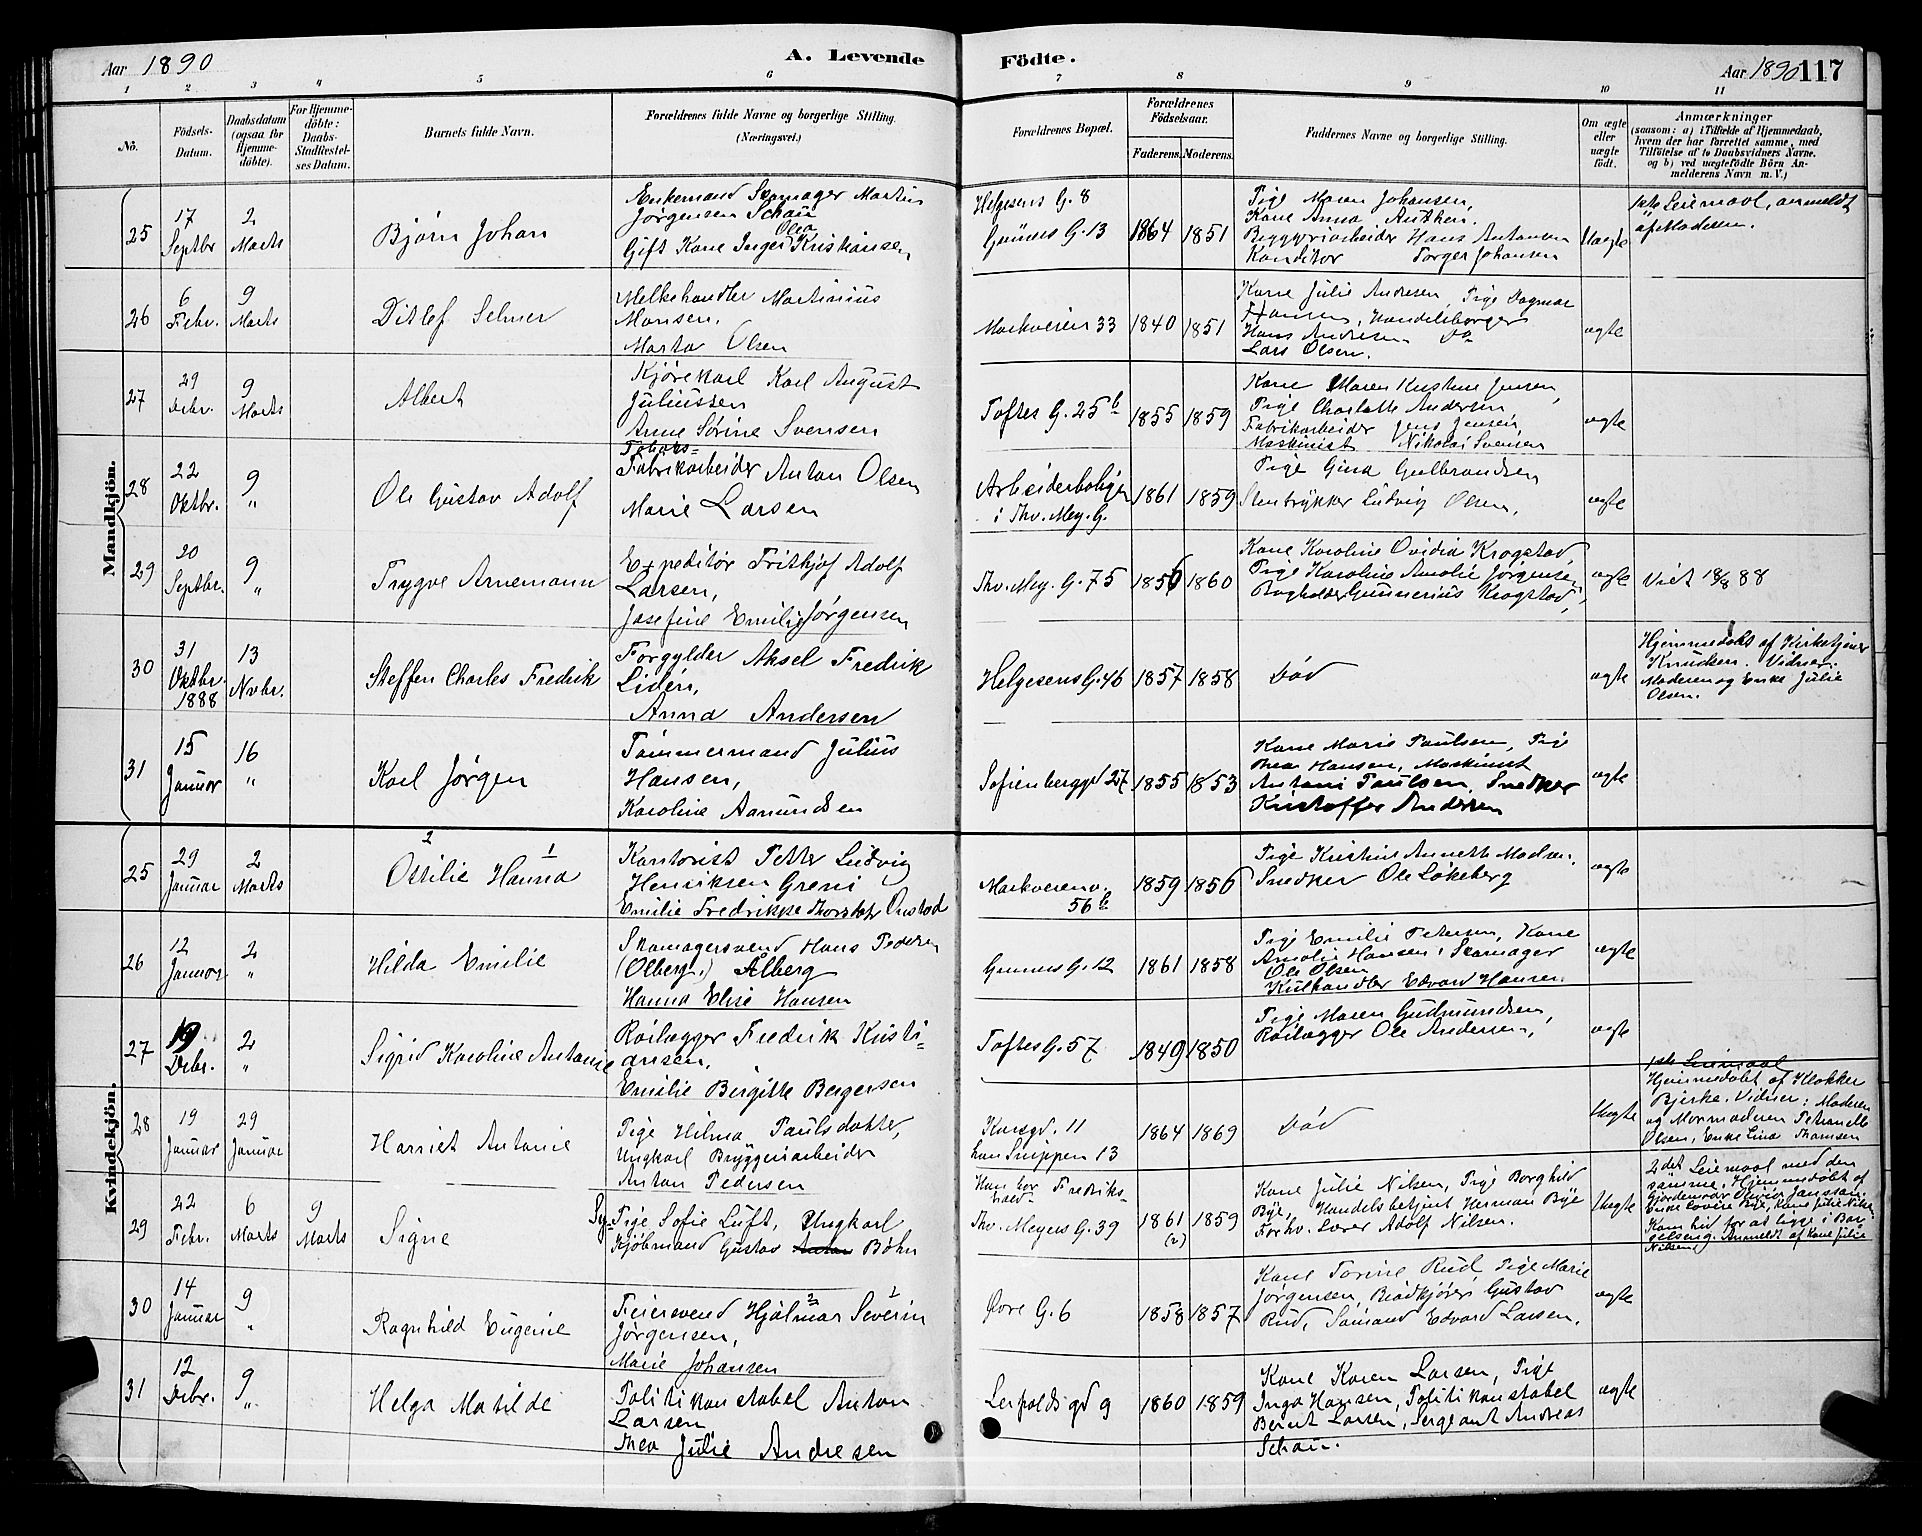 Aar 1890
A. Levende Födte.
Aar 1890 117
1 2 3 4 5 6 7 8 9 10 11
No.
Födsels-Datum.
Daabsdatum (ogsaa for Hjemmedöbte).
For Hjemmedöbte: Daabs-Stadfæstelses Datum.
Barnets fulde Navn.
Forældrenes fulde Navne og borgerlige Stilling. (Næringsvei.)
Forældrenes Bopæl.
Forældrenes Födselsaar.
Faderens. Moderens.
Faddernes Navne og borgerlige Stilling.
Om ægte eller uægte födt.
Anmærkninger
(saasom: a) i Tilfælde af Hjemmedaab,
hvem der har forrettet samme, med
Tilföielse af to Daabsvidners Navne,
og b) ved uægtefödte Börn Anmelderens Navn m. V.)
Mandkjön.
25
17 Septbr
2 Marts
Bjørn Johan
Enkemand Skomager Martin
Jørgensen Schau
Gift Kone Inger Olea Kristiansen
Helgesens G. 8
Grüners G. 13
1864 1851
Pige Maren Johansen,
Kone Anna Anthen.
Byggeriarbeider Hans Antonsen
Konditor Torger Johansen
Uægte
1ste Leiermaal, anmeldt
af Moderen.
26
6 Febr.
9 Marts
Ditlef Selmer
Melkehandler Martinius
Monsen.
Marta Olsen
Markveien 33
1840 1851
Kone Julie Andresen, Pige Dagmar
Hansen, Handelsborger
Hans Andresen Do
Lars Olsen.
ægte
27
29 Debr.
9 Marts
Albert
Kjørekarl Karl August
Juliussen
Anne Sørine Svensen
Toftes G. 25 b
1855 1859
Kone Maren Kristine Jensen,
Pige Charlotte Andersen,
Fabrikarbeider Jens Jensen,
Maskinist Nikolai Svensen
ægte
28
22 Oktbr.
9 "
Ole Gustav Adolf
Tobaks=
Fabrikarbeider Anton Olsen
Marie Larsen
Arbeiderboligen
i Thv. Mey. G.
1861 1859
Pige Gina Gulbrandsen
Stentrykker Ludvig Olsen,
ægte
29
20 Septbr.
9 "
Trygve Arnemann
Expeditør Frithjof Adolf
Larsen,
Josefine Emilie Jørgensen
Thv. Mey. G. 75
1856 1860
Kone Karoline Ovidia Krogstad,
Pige Karoline Amalie Jørgensen,
Bogholder Gunnerius Krogstad,
ægte
Viet 18/8 88
30
31 Oktbr. 1888
13 Nvbr.
Steffen Charles Fredrik
Forgylder Aksel Fredrik
Lidén,
Anna Andersen
Helgesens G. 46
1857 1858
Død
ægte
Hjemmedøbt af Kirketjener
Knudsen. Vidner:
Moderen og Enke Julie
Olsen.
31
15 Januar
16 "
Karl Jørgen
Tømmermand Julius
Hansen,
Karoline Aamundsen
Sofienberggd 27
1855 1853
Kone Marie Paulsen, Pige
Thea Hansen, Maskinist
Antoni Paulsen, Snedker
Kristoffer Andersen
ægte
Kvindekjön.
25
29 Januar
2 Marts
2 1
Ottilie Hanna
Kontorist Petter Ludvig
Henriksen Greni
Emilie Fredrikke Thorstdtr Onstad
Markveien
56 b
1859 1856
Pige Kristine Annette Madsen.
Snedker Ole Løkeberg
ægte
26
12 Januar
2 "
Hilda Emilie
Skomagersvend Hans Pedersen
(Olberg.) Ålberg
Hanna Elise Hansen
Grüners G. 12
1861 1858
Pige Emilie Petersen, Kone
Amalie Hansen, Skomager
Ole Olsen
Kulhandler Edvard Hansen.
ægte
27
19 Debr.
2 "
Sigrid Karoline Antonie
Rørlægger Fredrik Kristi=
ansen.
Emilie Birgitte Bergersen
Toftes G. 57
1849 1850
Pige Maren Gudmundsen,
Rørlægger Ole Andersen,
ægte
28
19 Januar
29 Januar
Harriet Antonie
Pige Hilma Paulsdatter,
Ungkarl Bryggeriarbeider
Anton Pedersen
Korsgd. 11
han Snippen 13
1864 1869
Død
Uægte
1ste Leiermaal
Hjemmedøbt af Klokker
Bjerke. Vidner: Moderen
og Mormoderen Petronelle
Olsen, Enke Lina Thomsen
29
22 Febr.
6 Marts
9 Marts
Signe
Sy=Pige Sofie Luft, Ungkarl
Kjøbmand Gustav Anton Bøhn
Han bor Fredriks=
hald.
Thv. Meyers G. 39
1861 1859
(2)
Kone Julie Nilsen, Pige Borghild
Bye, Handelsbetjent Herman Bye
Forhv. Lærer Adolf Nilsen.
Uægte
2det Leiermaal med den
samme. Hjemmedøbt af
Gjordemoder Olivia Janssan.
Enke Lovise Bye, Kone Julie Nilsen.
Kom hid for at ligge i Bar
selseng. Anmeldt af Kone Julie
Nilsen
30
14 Januar
9 "
Ragnhild Eugenie
2 1
Feiersvend Hjalmar Severin
Jørgensen,
Marie Johansen
Øvre G. 6
1858 1857
Kone Torine Rud, Pige Marie
Jørgensen, Brødkjører Gustav
Rud, Sømand Edvard Larsen.
ægte
31
12 Debr.
9 "
Helga Matilde
Politikonstabel Anton
Larsen
Thea Julie Andresen
Leirfaldsgd 9
1860 1859
Kone Karen Larsen, Pige
Inga Hansen, Politikonstabel
Bernt Larsen, Sergeant Andreas
Schau.
ægte